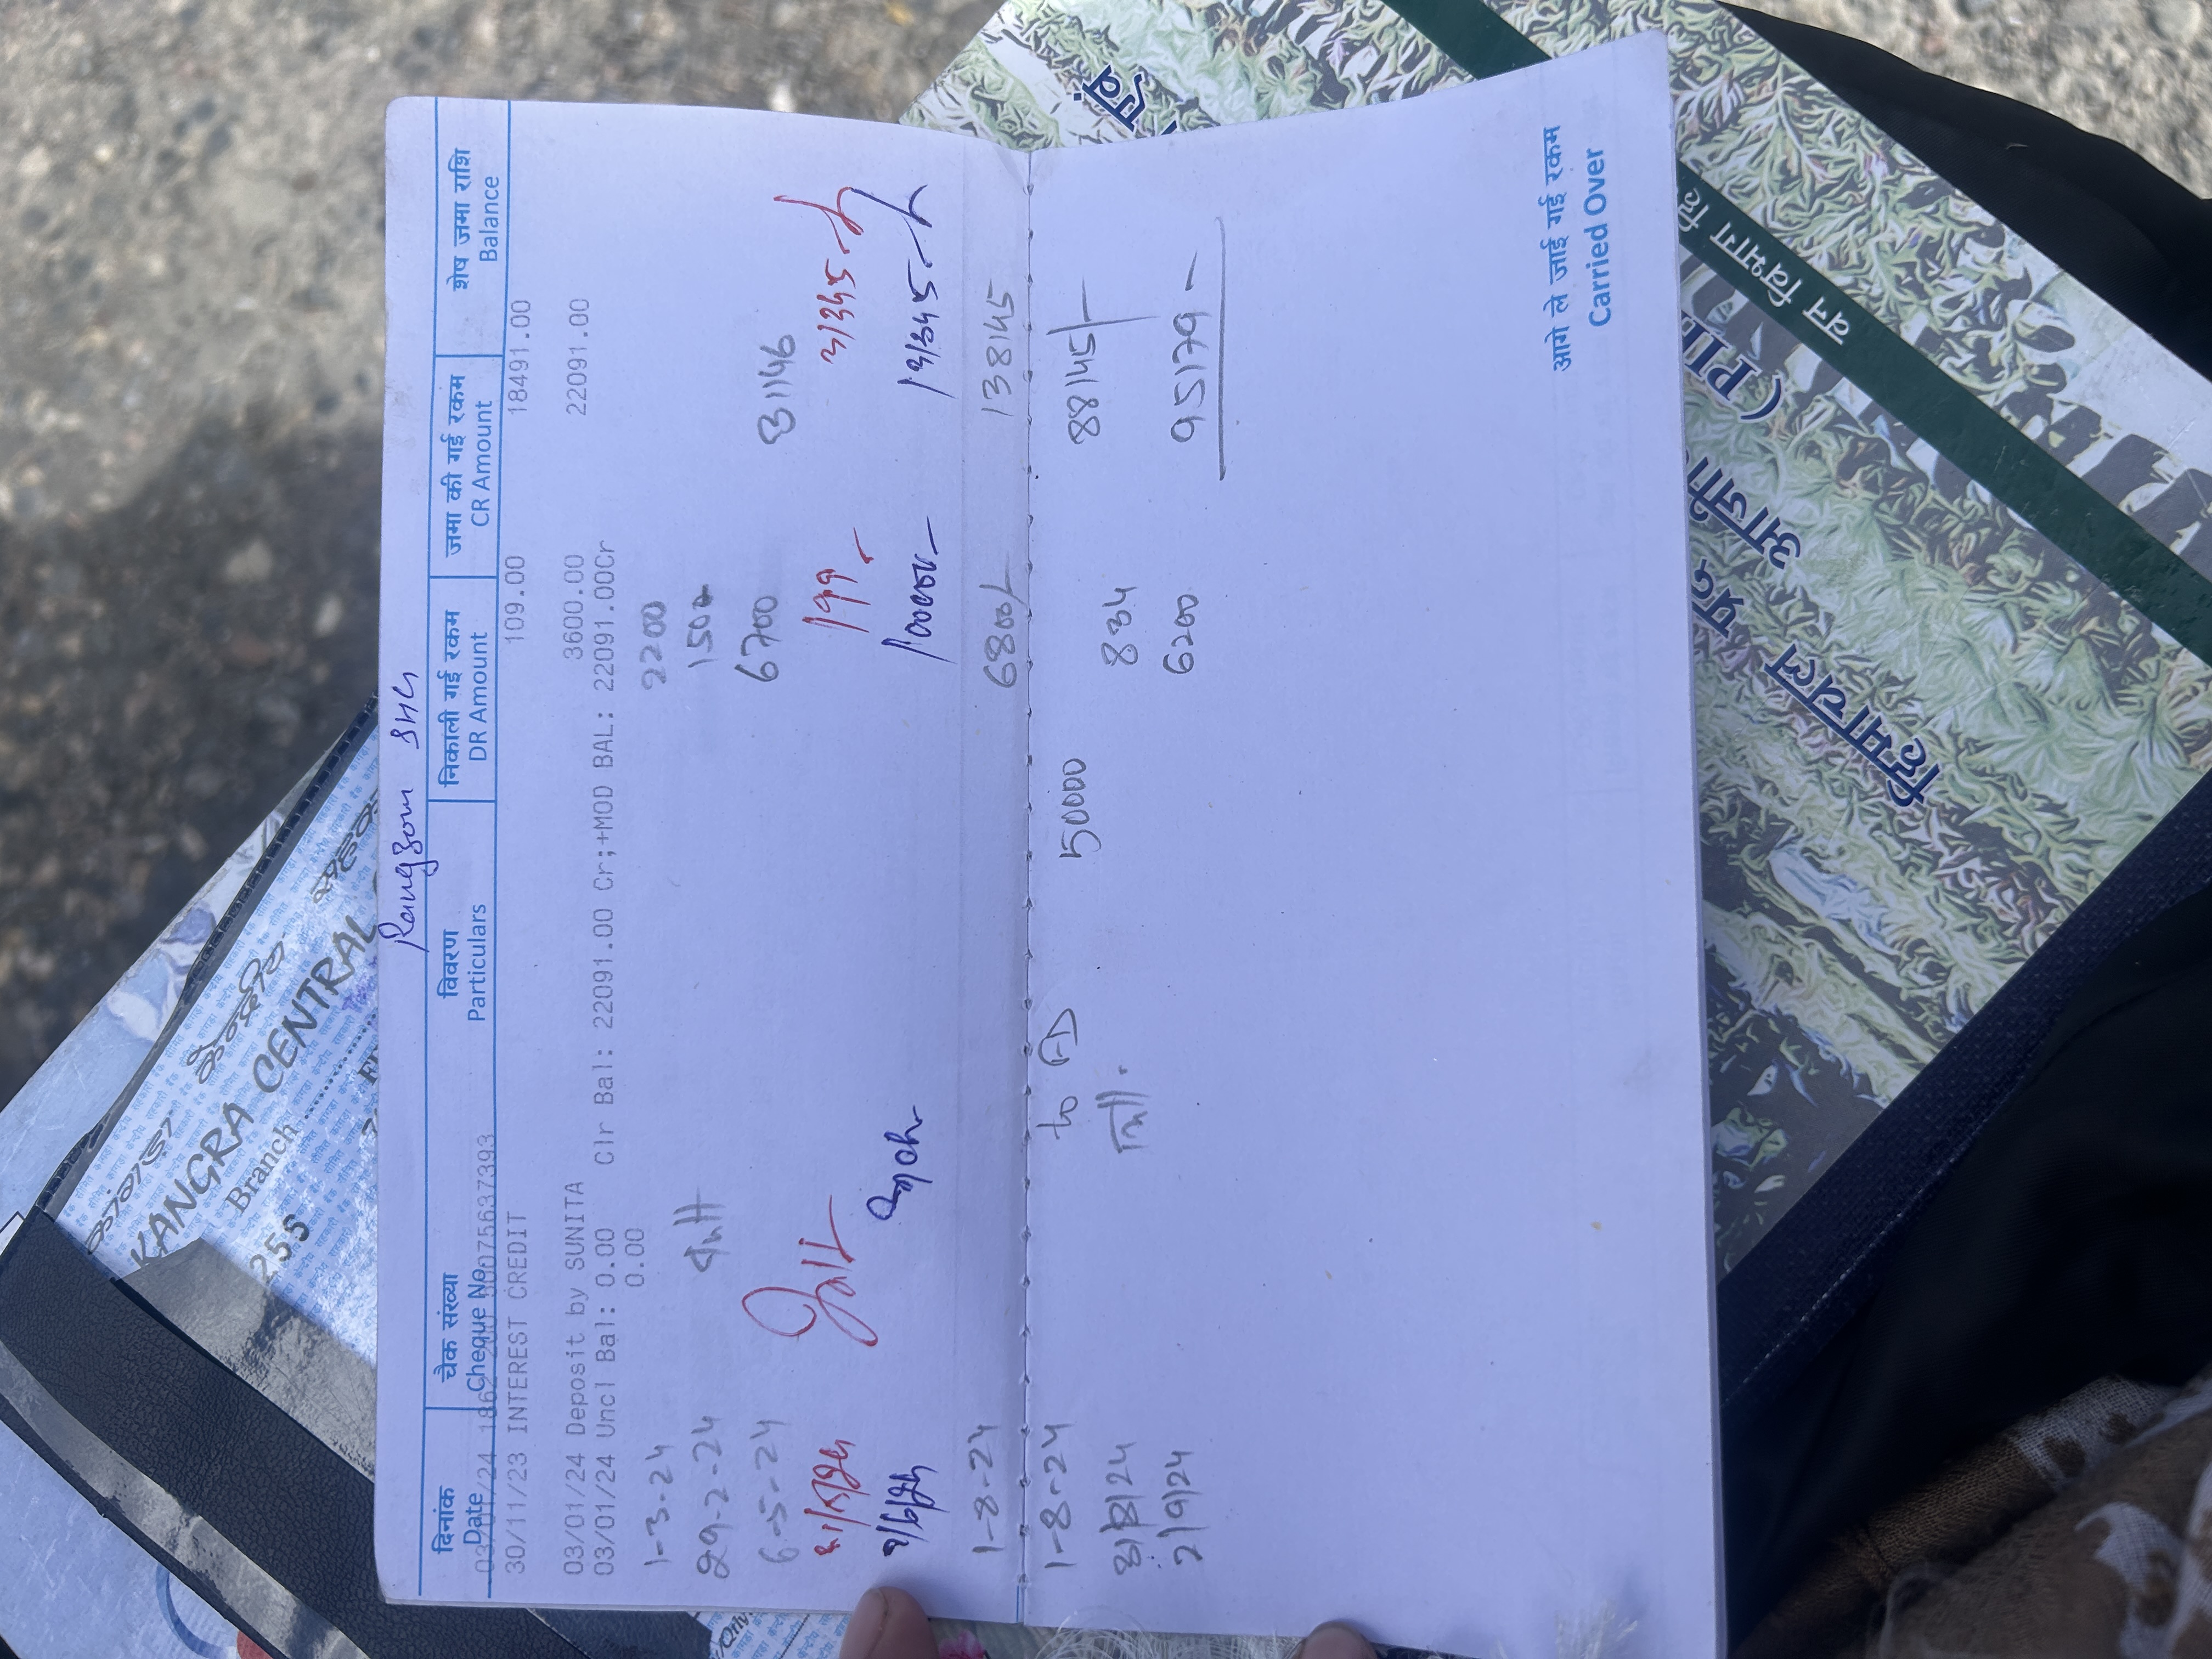 Rangzom SHG
दिनांक चैक संख्या विवरण निकाली गई रकम जमा की गई रकम शेष जमा राशि
Date Cheque No. Particulars DR Amount CR Amount Balance
30/11/23 INTEREST CREDIT 109.00 18491.00
03/01/24 Deposit by SUNITA 3600.00 22091.00
03/01/24 Uncl Bal: 0.00 Clr Bal: 22091.00 Cr;+MOD BAL: 22091.00Cr
0.00
1-3-24 2200
29-2-24 1500
6-5-24 6700 31146
199 31345
100000 131345
1-8-24 6800/- 138145
1-8-24 to FD 50000 88145/-
3/8/24 Int. 834
2/9/24 6200 95179-
आगे ले जाई गई रकम
Carried Over
KANGRA CENTRAL
Branch
255
हिमाचल प्रद
आजी
वन विभाग हि
एवं